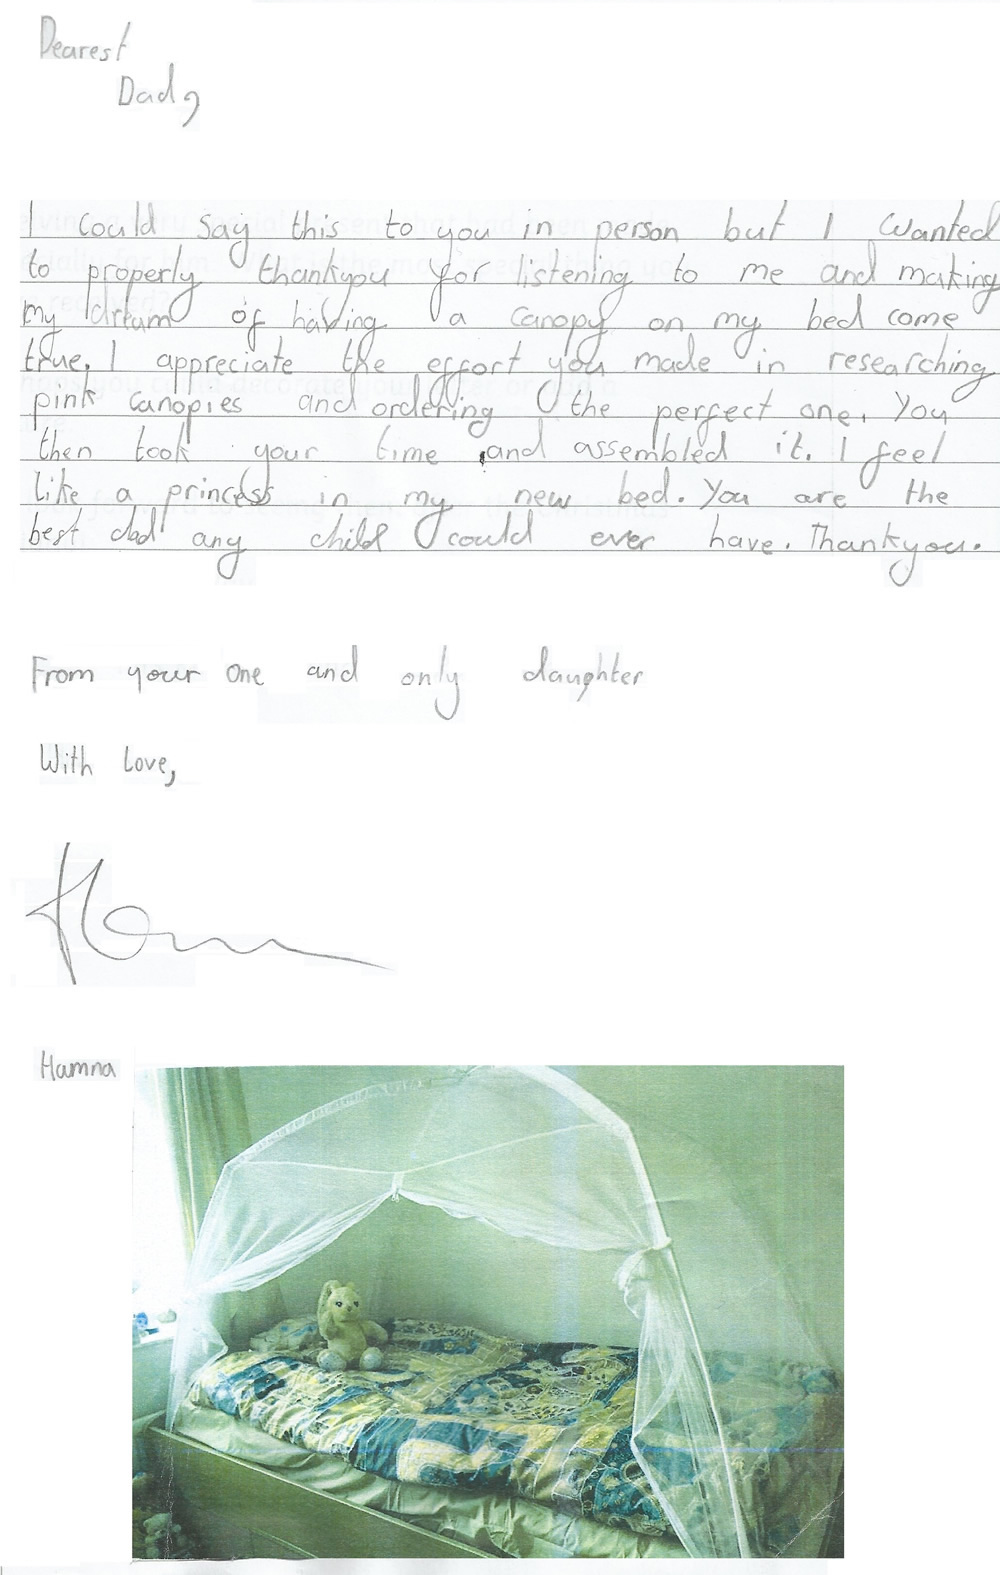 Dearest
Dad,
I could say this to you in person but I wanted
to properly thankyou for listening to me and making
my dream of having a canopy on my bed come
true. I appreciate the effort you made in researching
pink canopies and ordering the perfect one. You
then took your time and assembled it. I feel
like a princess in my new bed. You are the
best dad any child could ever have. Thankyou.
From your one and only daughter
With love,
Hamna